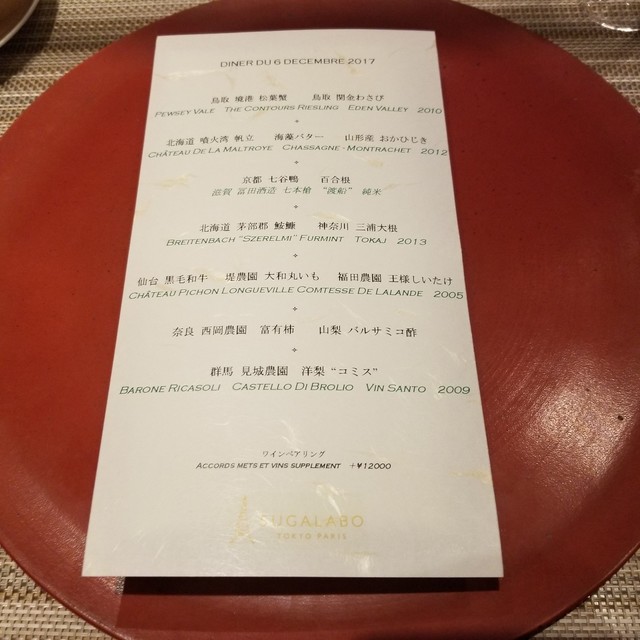 DINER DU 6 DECEMBRE 2017
鳥取 境港 松葉蟹　鳥取 関金わさび
PEWSEY VALE THE CONTOURS RIESLING EDEN VALLEY 2010
北海道 噴火湾 帆立　海藻バター　山形産 おかひじき
CHÂTEAU DE LA MALTROYE CHASSAGNE - MONTRACHET 2012
京都 七谷鴨　百合根
滋賀 冨田酒造 七本槍 "渡船" 純米
北海道 茅部郡 鮟鱇　神奈川 三浦大根
BREITENBACH "SZERELMI" FURMINT TOKAJ 2013
仙台 黒毛和牛　堤農園 大和丸いも　福田農園 王様しいたけ
CHÂTEAU PICHON LONGUEVILLE COMTESSE DE LALANDE 2005
奈良 西岡農園 富有柿　山梨 バルサミコ酢
群馬 見城農園 洋梨 "コミス"
BARONE RICASOLI CASTELLO DI BROLIO VIN SANTO 2009
ワインペアリング
ACCORDS METS ET VINS SUPPLEMENT +¥12000
SUGALABO
TOKYO PARIS